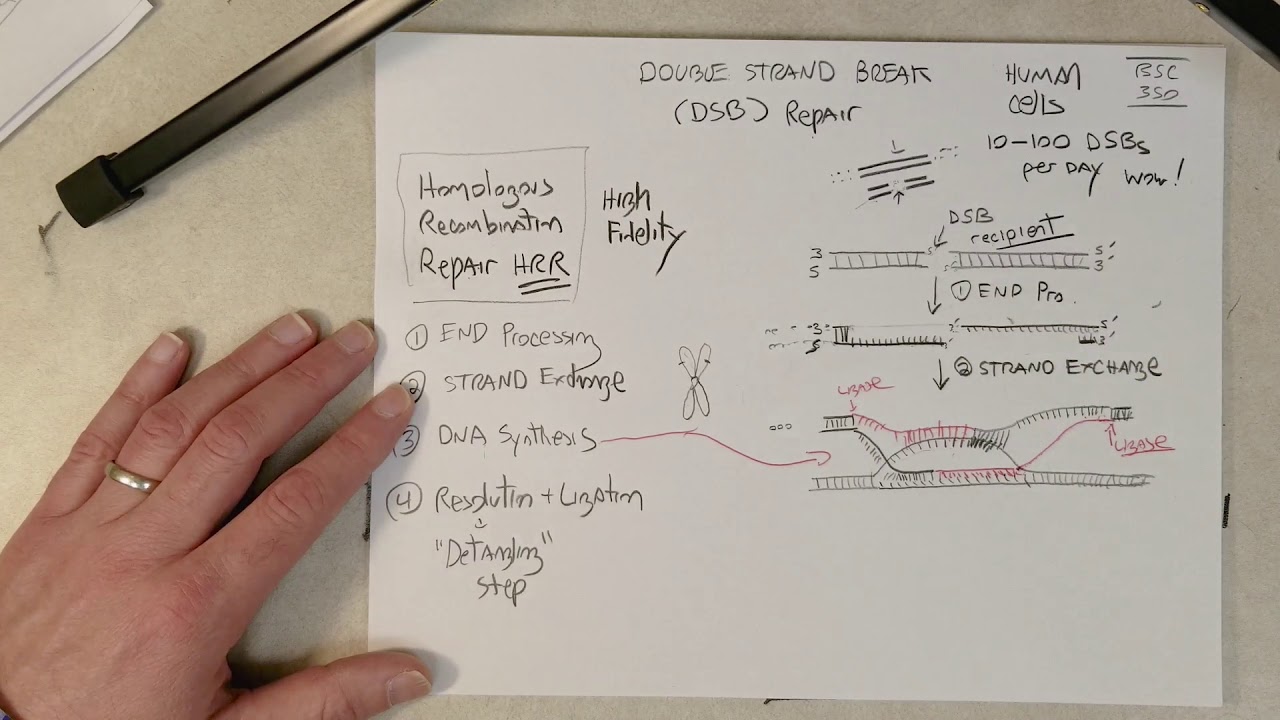 DOUBLE STRAND BREAK
(DSB) Repair
HUMAN
cells
BSC
350
10-100 DSBs
per DAY wow!
Homologous
Recombination
Repair HRR
High
Fidelity
① END Processing
② STRAND Exchange
③ DNA Synthesis
④ Resolution + Ligation
"Detangling"
step
DSB
recipient
3 5'
5 3'
① END Pro.
3 5'
5 3'
② STRAND EXCHANGE
LIGASE
LIGASE